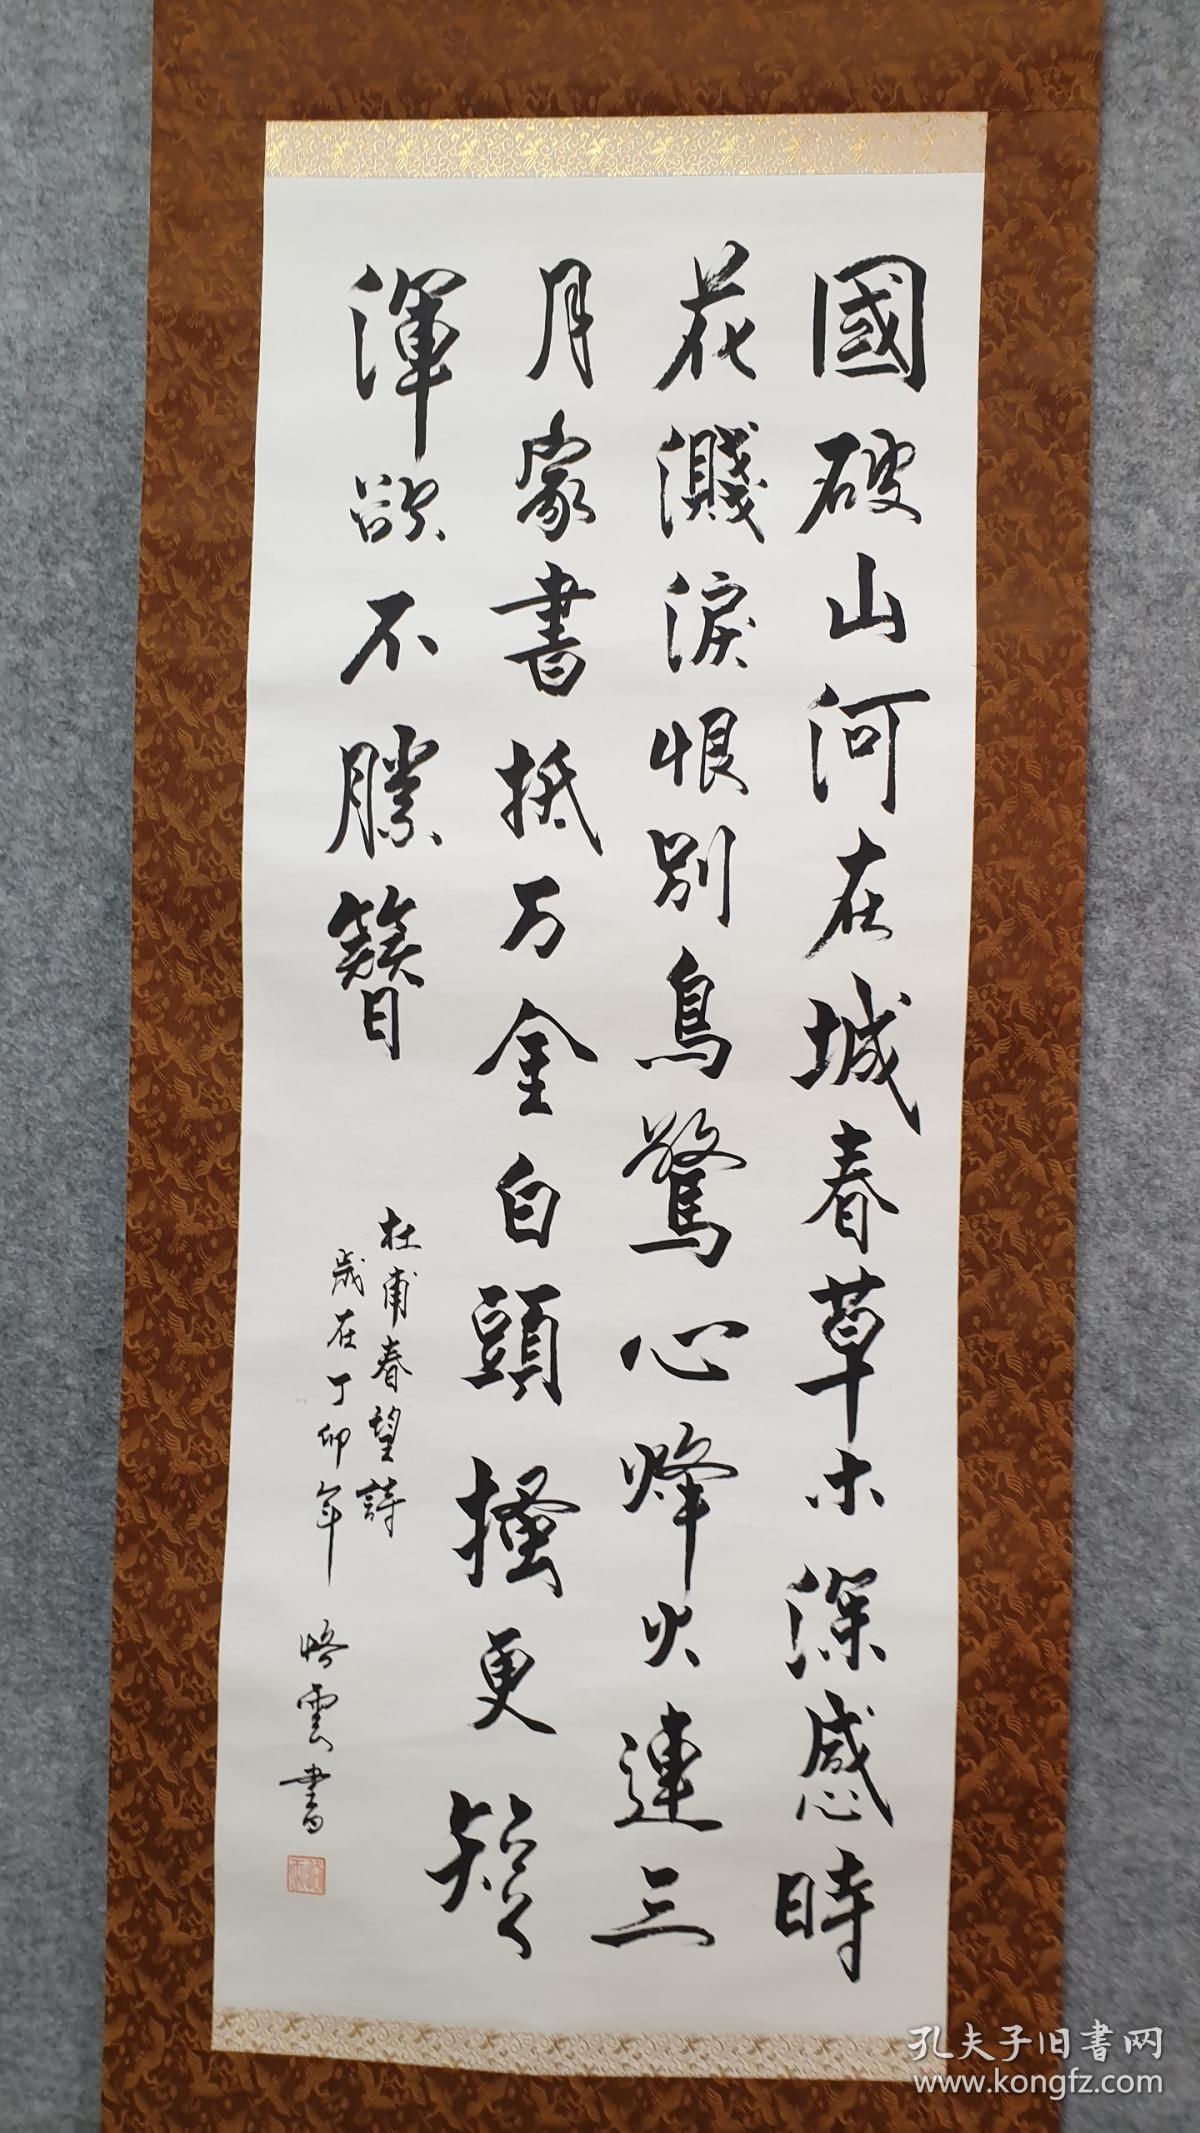 國破山河在城春草木深感時
花濺淚恨別鳥驚心烽火連三
月家書抵万金白頭搔更短
渾欲不勝簪
杜甫春望詩
歲在丁卯年
雲書
孔夫子旧书网
www.kongfz.com